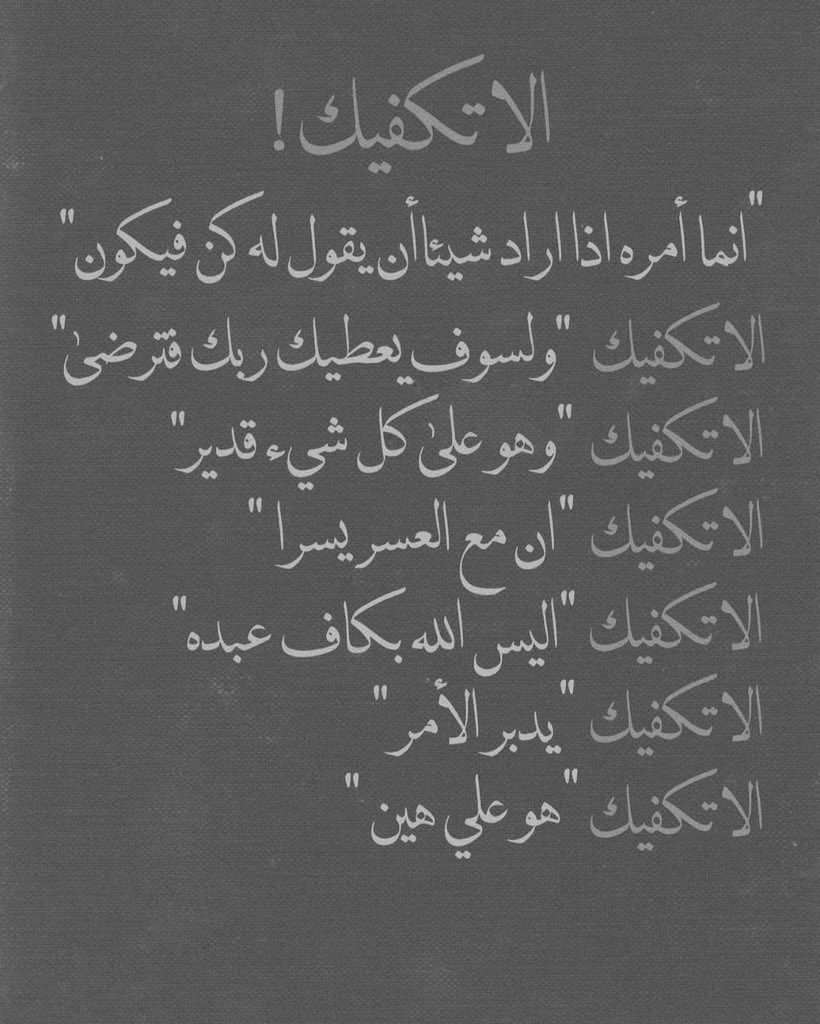 الا تكفيك !
"انما أمره اذا اراد شيئا أن يقول له كن فيكون"
الا تكفيك "ولسوف يعطيك ربك فترضىٰ"
الا تكفيك "وهو علىٰ كل شيء قدير"
الا تكفيك "ان مع العسر يسرا "
الا تكفيك "اليس الله بكاف عبده"
الا تكفيك "يدبر الأمر"
الا تكفيك "هو علي هين "